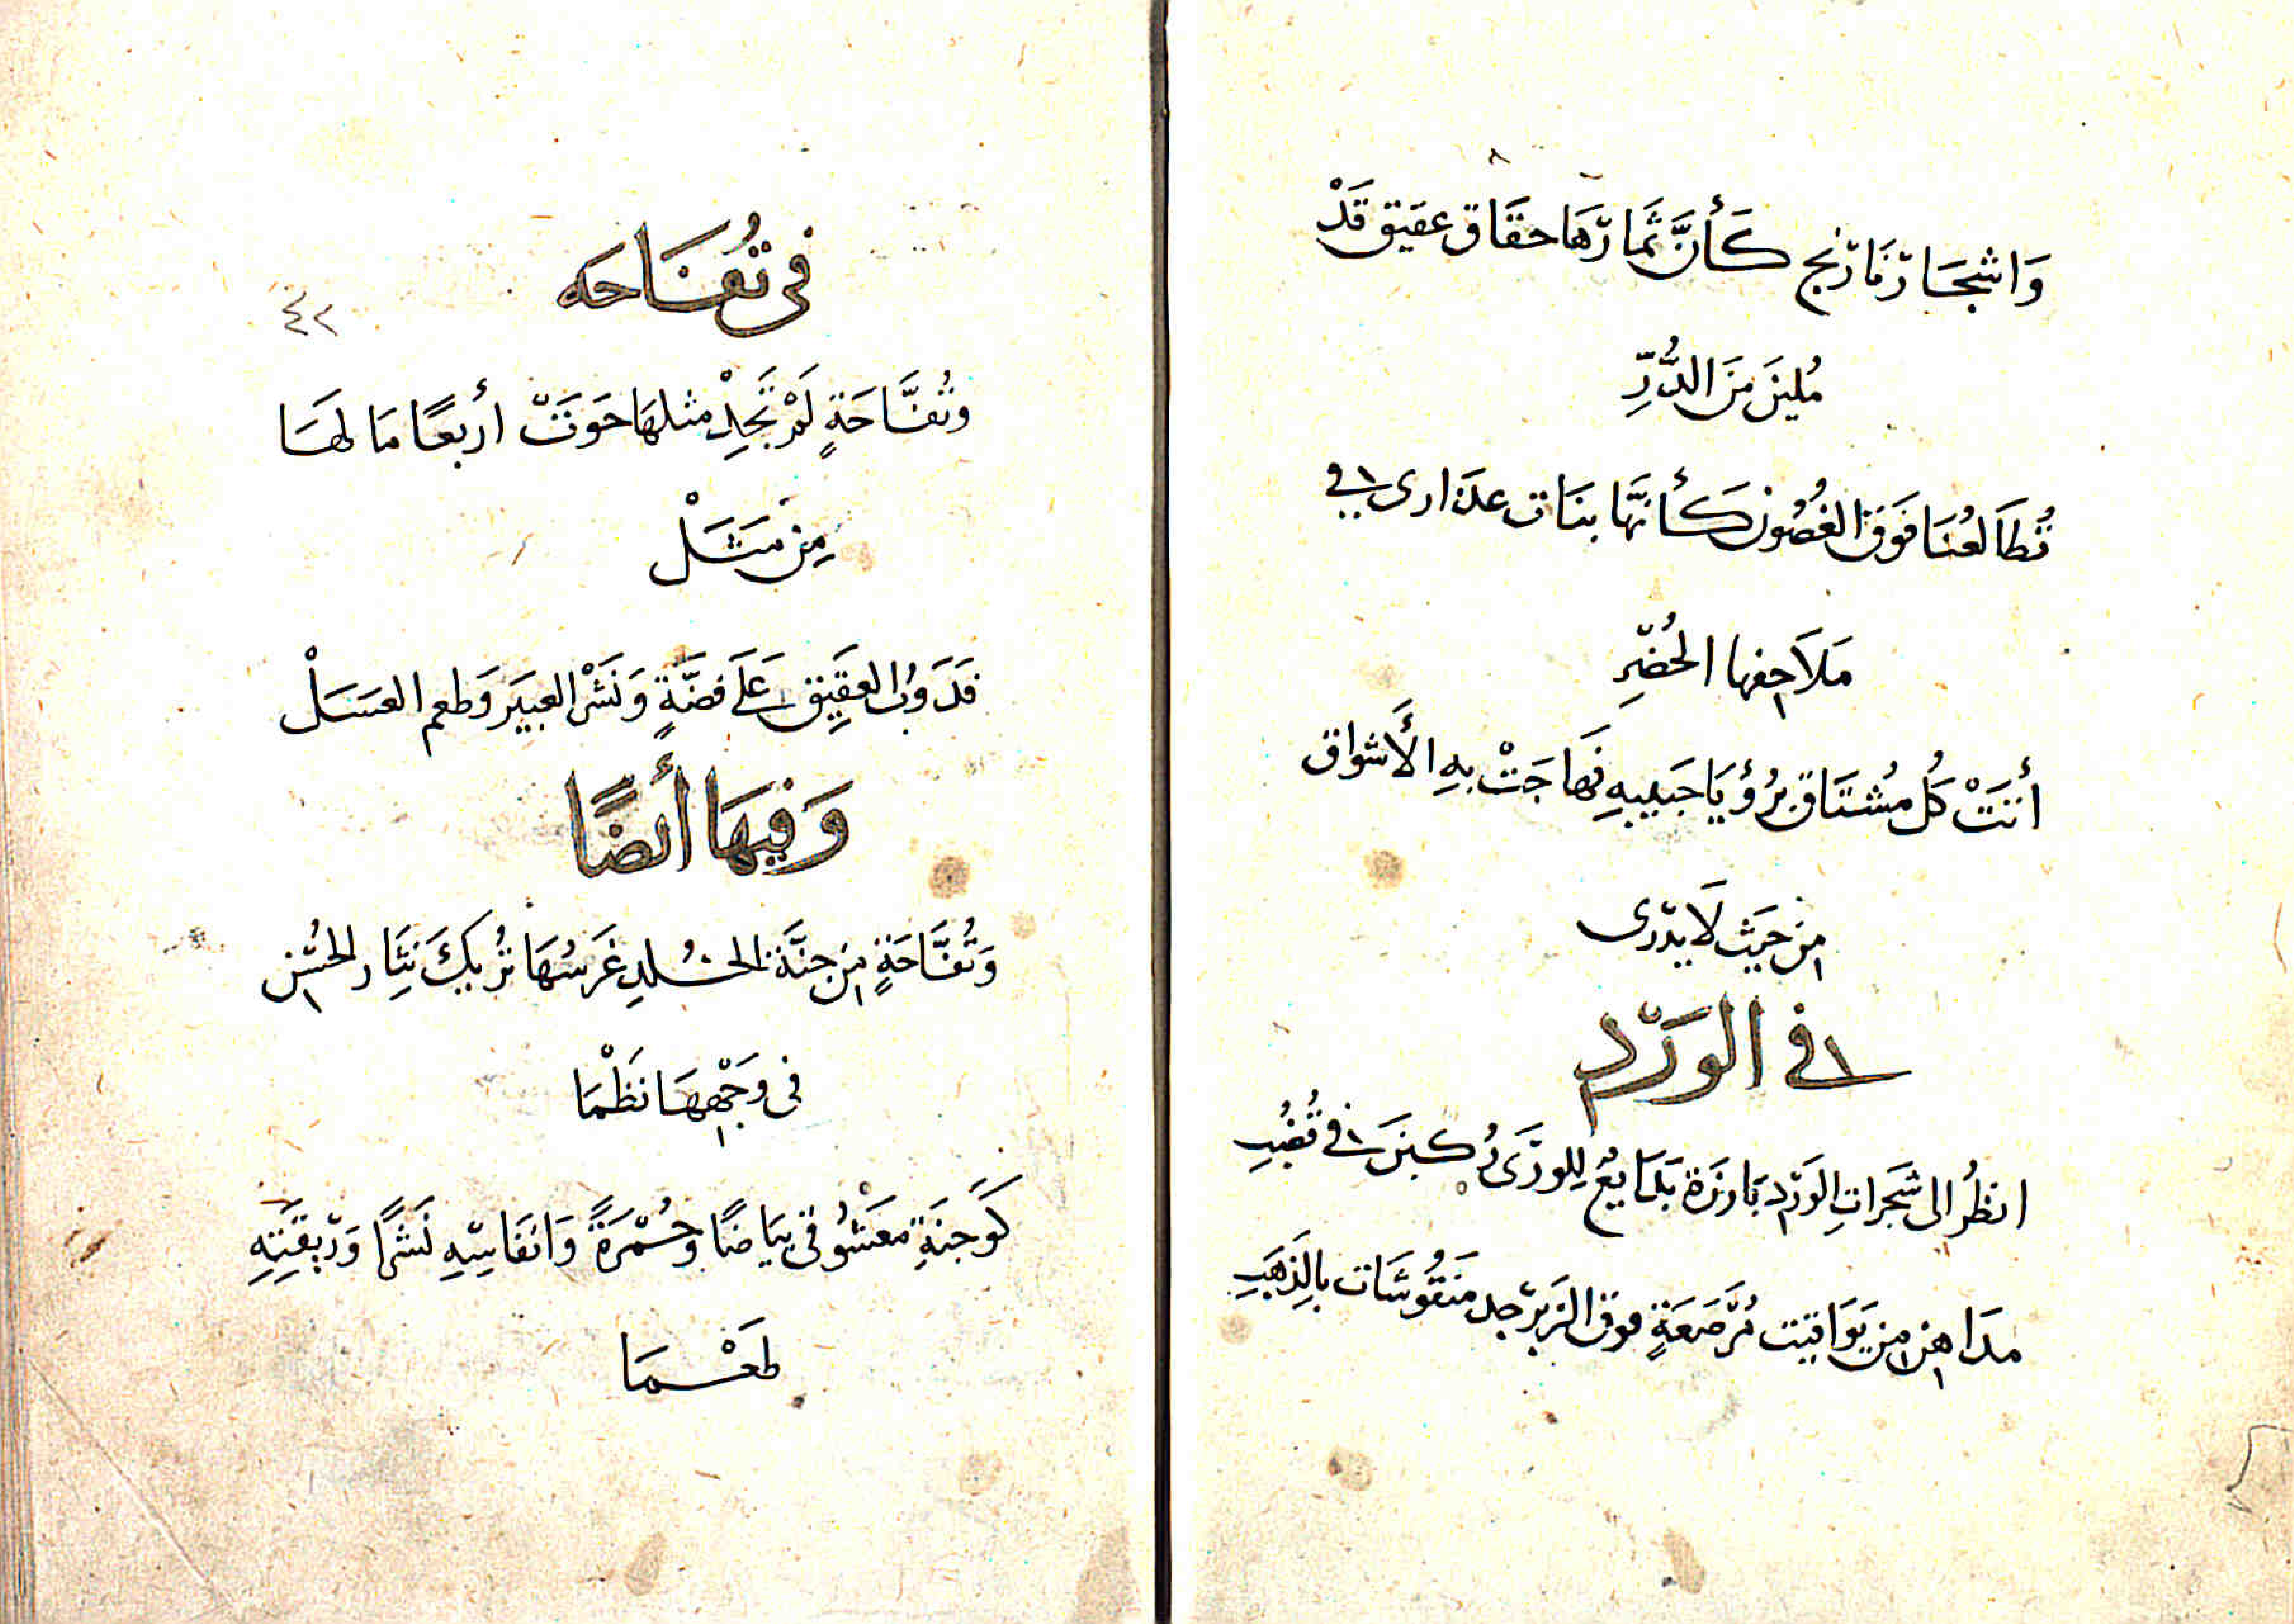 وَاشجَار نَارنج كَأَنَّ ثمَارهَا حقَاق عقيق قَدْ
مُلِينَ مِنَ الدُّرِّ
تُطَالعُنَا فَوقَ الغُصُون كَأَنَّهَا بنَات عذارى في
مَلَاحِفها الخُضْرِ
أَتَتْ كُل مُشتَاق بِرُؤيَا حَبيبِهِ فَهَاجَتْ بِهِ الأَشواق
مِن حَيث لَا يدرى
في الوَرْد
انظُر الى شَجَراتِ الوَرْد بَارزَة بَدَايعُ لِلوَرَى رُكبنَ في قُضُبِ
مدَاهن مِن يوَاقيت مُرَصَّعَةٍ فوق الزَبرجد مَنقُوشَات بالذَهَبِ
فى تُفَّاحه
٤٢
وتُفَّاحَةٍ لَمْ تَجِدْ مثلهَا حَوَتْ أربعًا مَا لهَا
مِن مَثَلْ
فَذَوب العَقِيق عَلَى فضَّةٍ وَنَشْر العبيَر وَطعم العَسَلْ
وَفيهَا أَيضًا
وَتُفَّاحَةٍ مِن جنَّة الخُلدِ غَرسُهَا تُريكَ نِثَار الحُسْن
فى وَجْهِهَا نَظْمَا
كَوَجنَةِ مَعْشُوقى بيَاضًا وحُمْرَةً وَانفَاسِهِ نَشْرًا وَرِيقَتِهِ
طَعْمَا